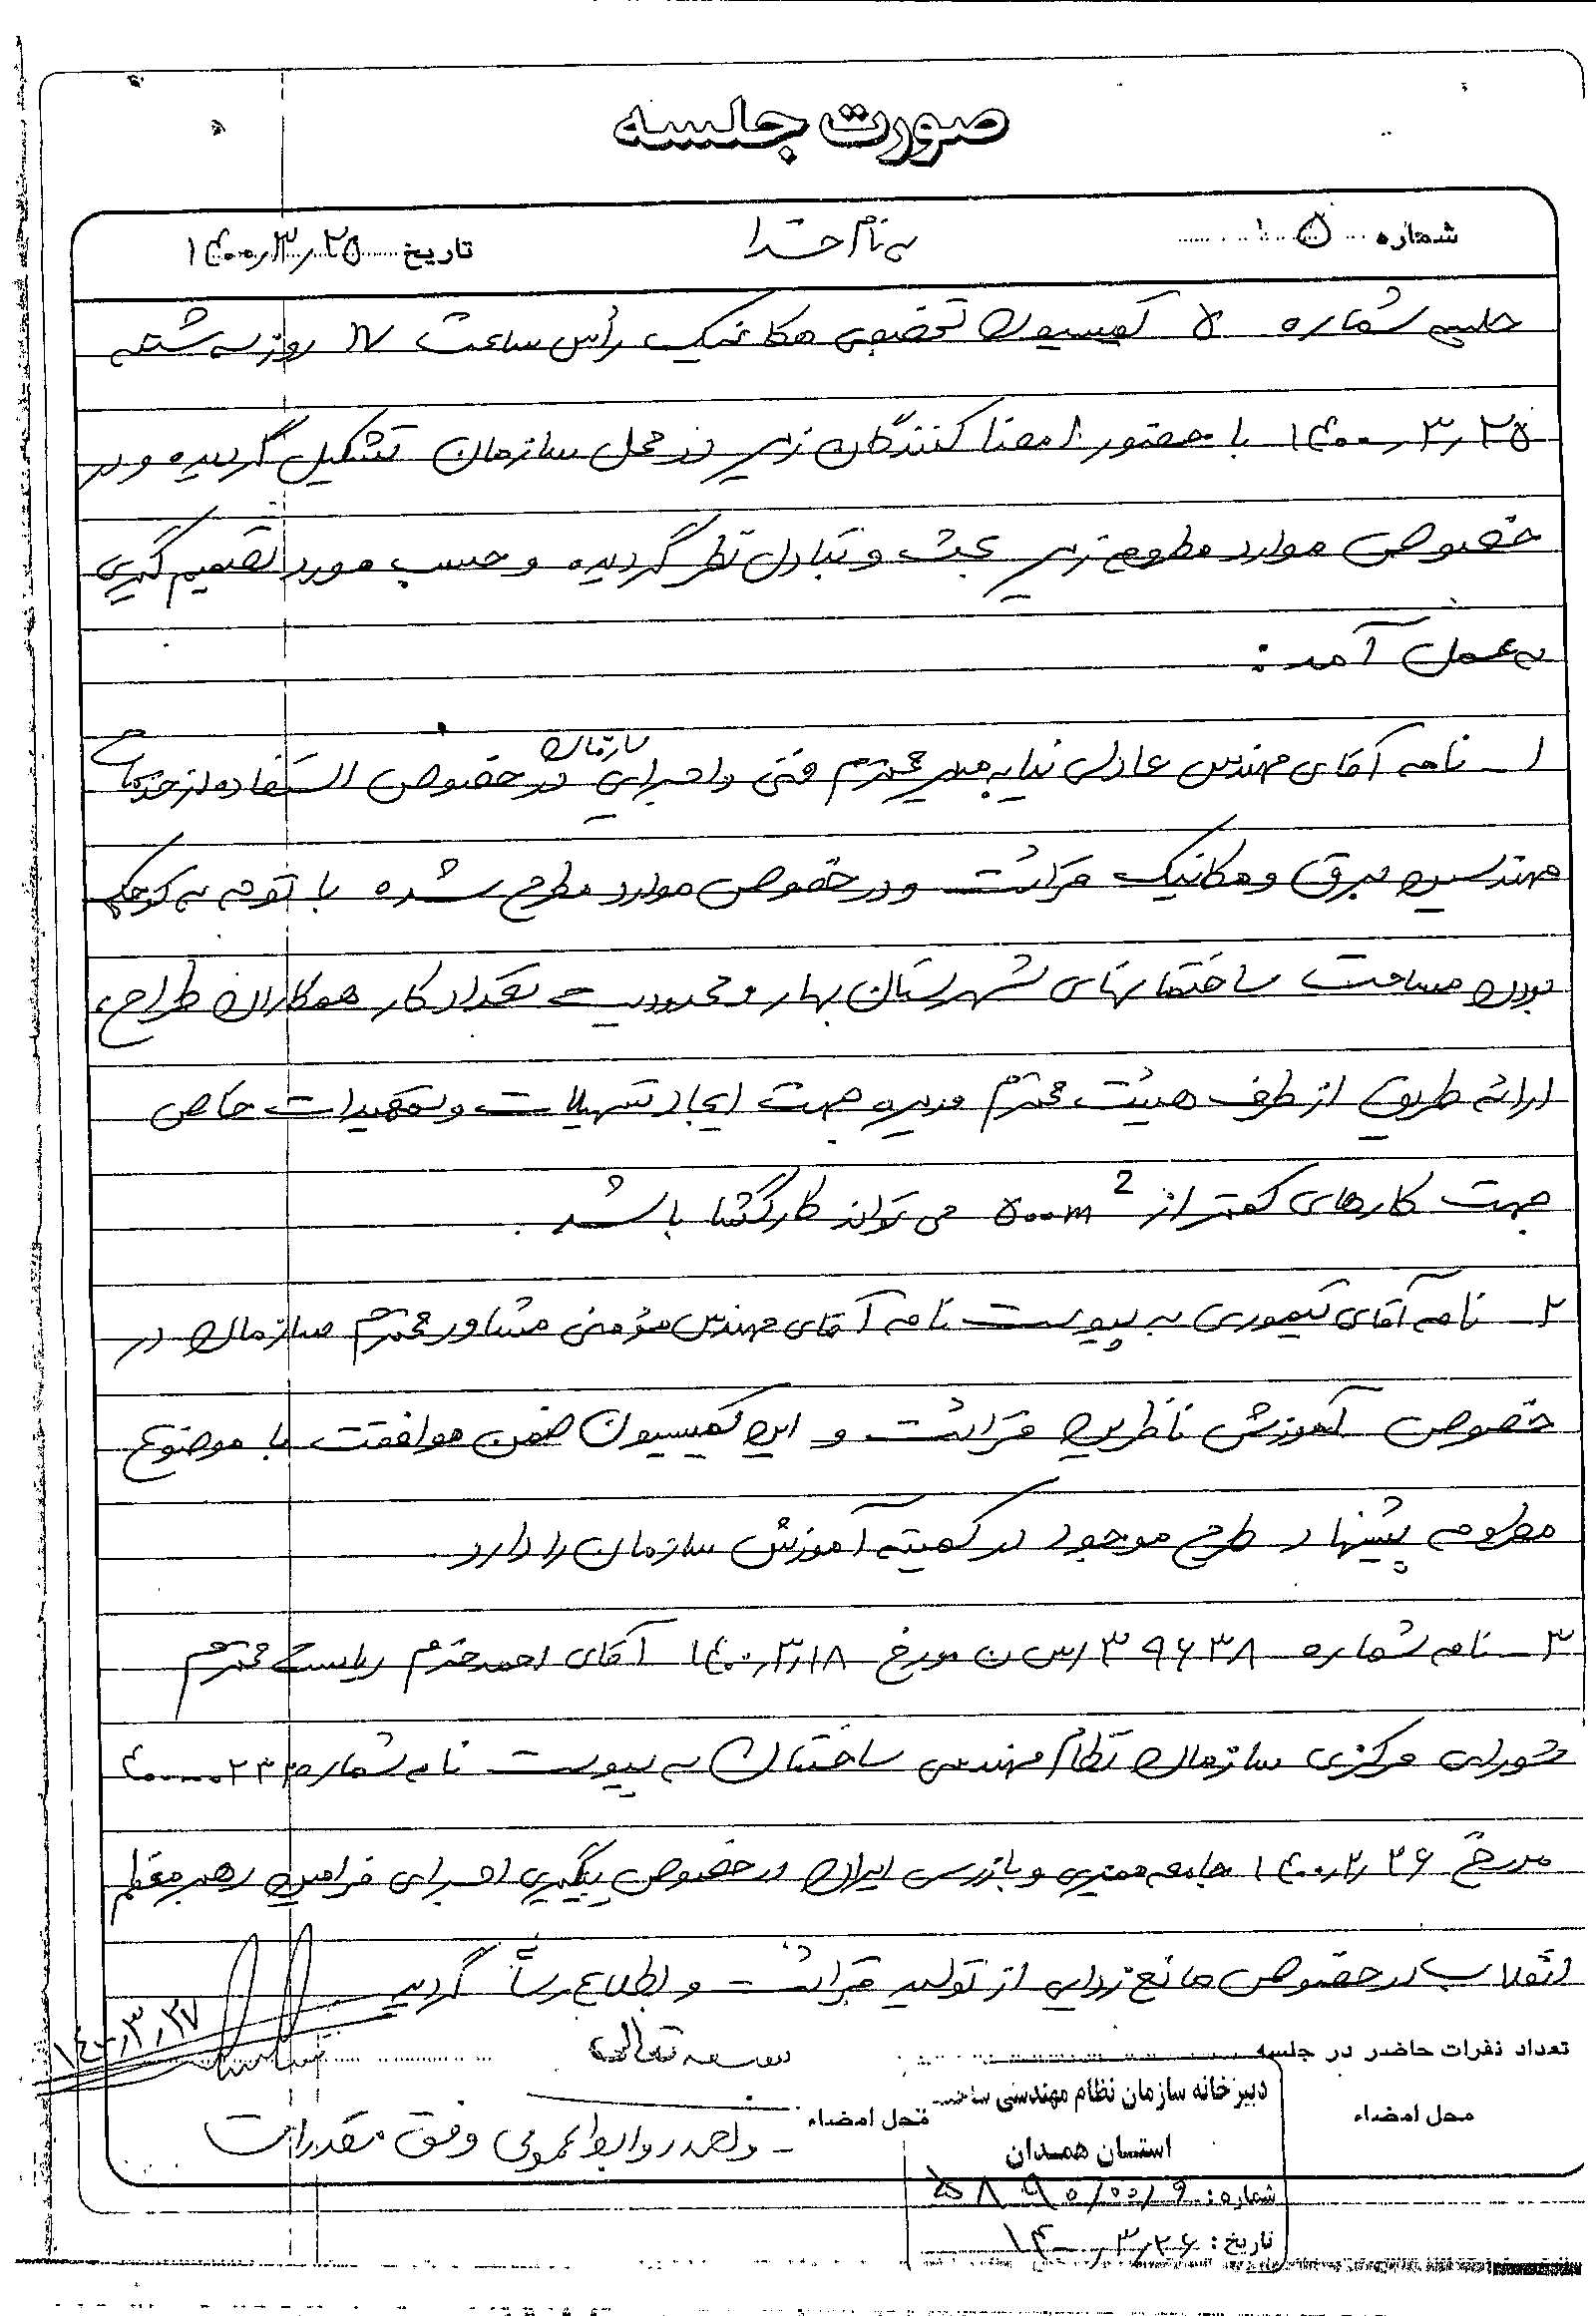 صورت جلسه
شماره ۵
به نام خدا
تاریخ ۱۴۰۰٫۳٫۲۵
جلسه شماره ۵ کمیسیون تخصصی مکانیک رأس ساعت ۱۷ روز سه شنبه
۱۴۰۰٫۳٫۲۵ با حضور امضا کنندگان زیر در محل سازمان تشکیل گردیده و در
خصوص موارد مطروحه زیر بحث و تبادل نظر گردیده و حسب مورد تصمیم گیری
به عمل آمد :
۱_ نامه آقای مهندس عادل نیا به مدیر محترم فنی و اجرایی سازمان در خصوص استفاده از خدمات
مهندسین برق و مکانیک قرائت و در خصوص موارد مطرح شده با توجه به کوچک
بودن مساحت ساختمانهای شهرستان بهار و محدودیت تعداد کار همکاران طراح،
ارائه طریق از طرف هیئت محترم مدیره جهت ایجاد تسهیلات و تمهیدات خاص
جهت کارهای کمتر از ۵۰۰m² می تواند کارگشا باشد .
۲_ نامه آقای تیموری به پیوست نامه آقای مهندس مؤمنی مشاور محترم سازمان در
خصوص آموزش ناظرین قرائت و این کمیسیون ضمن موافقت با موضوع
مطروحه پیشنهاد طرح موجود در کمیته آموزش سازمان را دارد.
۳_ نامه شماره ۳۹۶۳۸/ش ن مورخ ۱۴۰۰٫۳٫۱۸ آقای احمد خرم ریاست محترم
شورای مرکزی سازمان نظام مهندسی ساختمان به پیوست نامه شماره
مورخ ۱۴۰۰٫۲٫۲۶ جامعه ممیزی و بازرسی ایران در خصوص پیگیری اجرای فرامین رهبر معظم
انقلاب در خصوص مانع زدایی از تولید قرائت و اطلاع رسانی گردید
۱۴۰۰٫۳٫۲۷
تعداد نفرات حاضر در جلسه
بسمه تعالی
محل امضاء
محل امضاء
_ واحد روابط عمومی وفق مقررات
دبیرخانه سازمان نظام مهندسی ساختمان
استان همدان
شماره: ۵۸۹۰/۰۰/۹
تاریخ: ۱۴۰۰٫۳٫۲۶